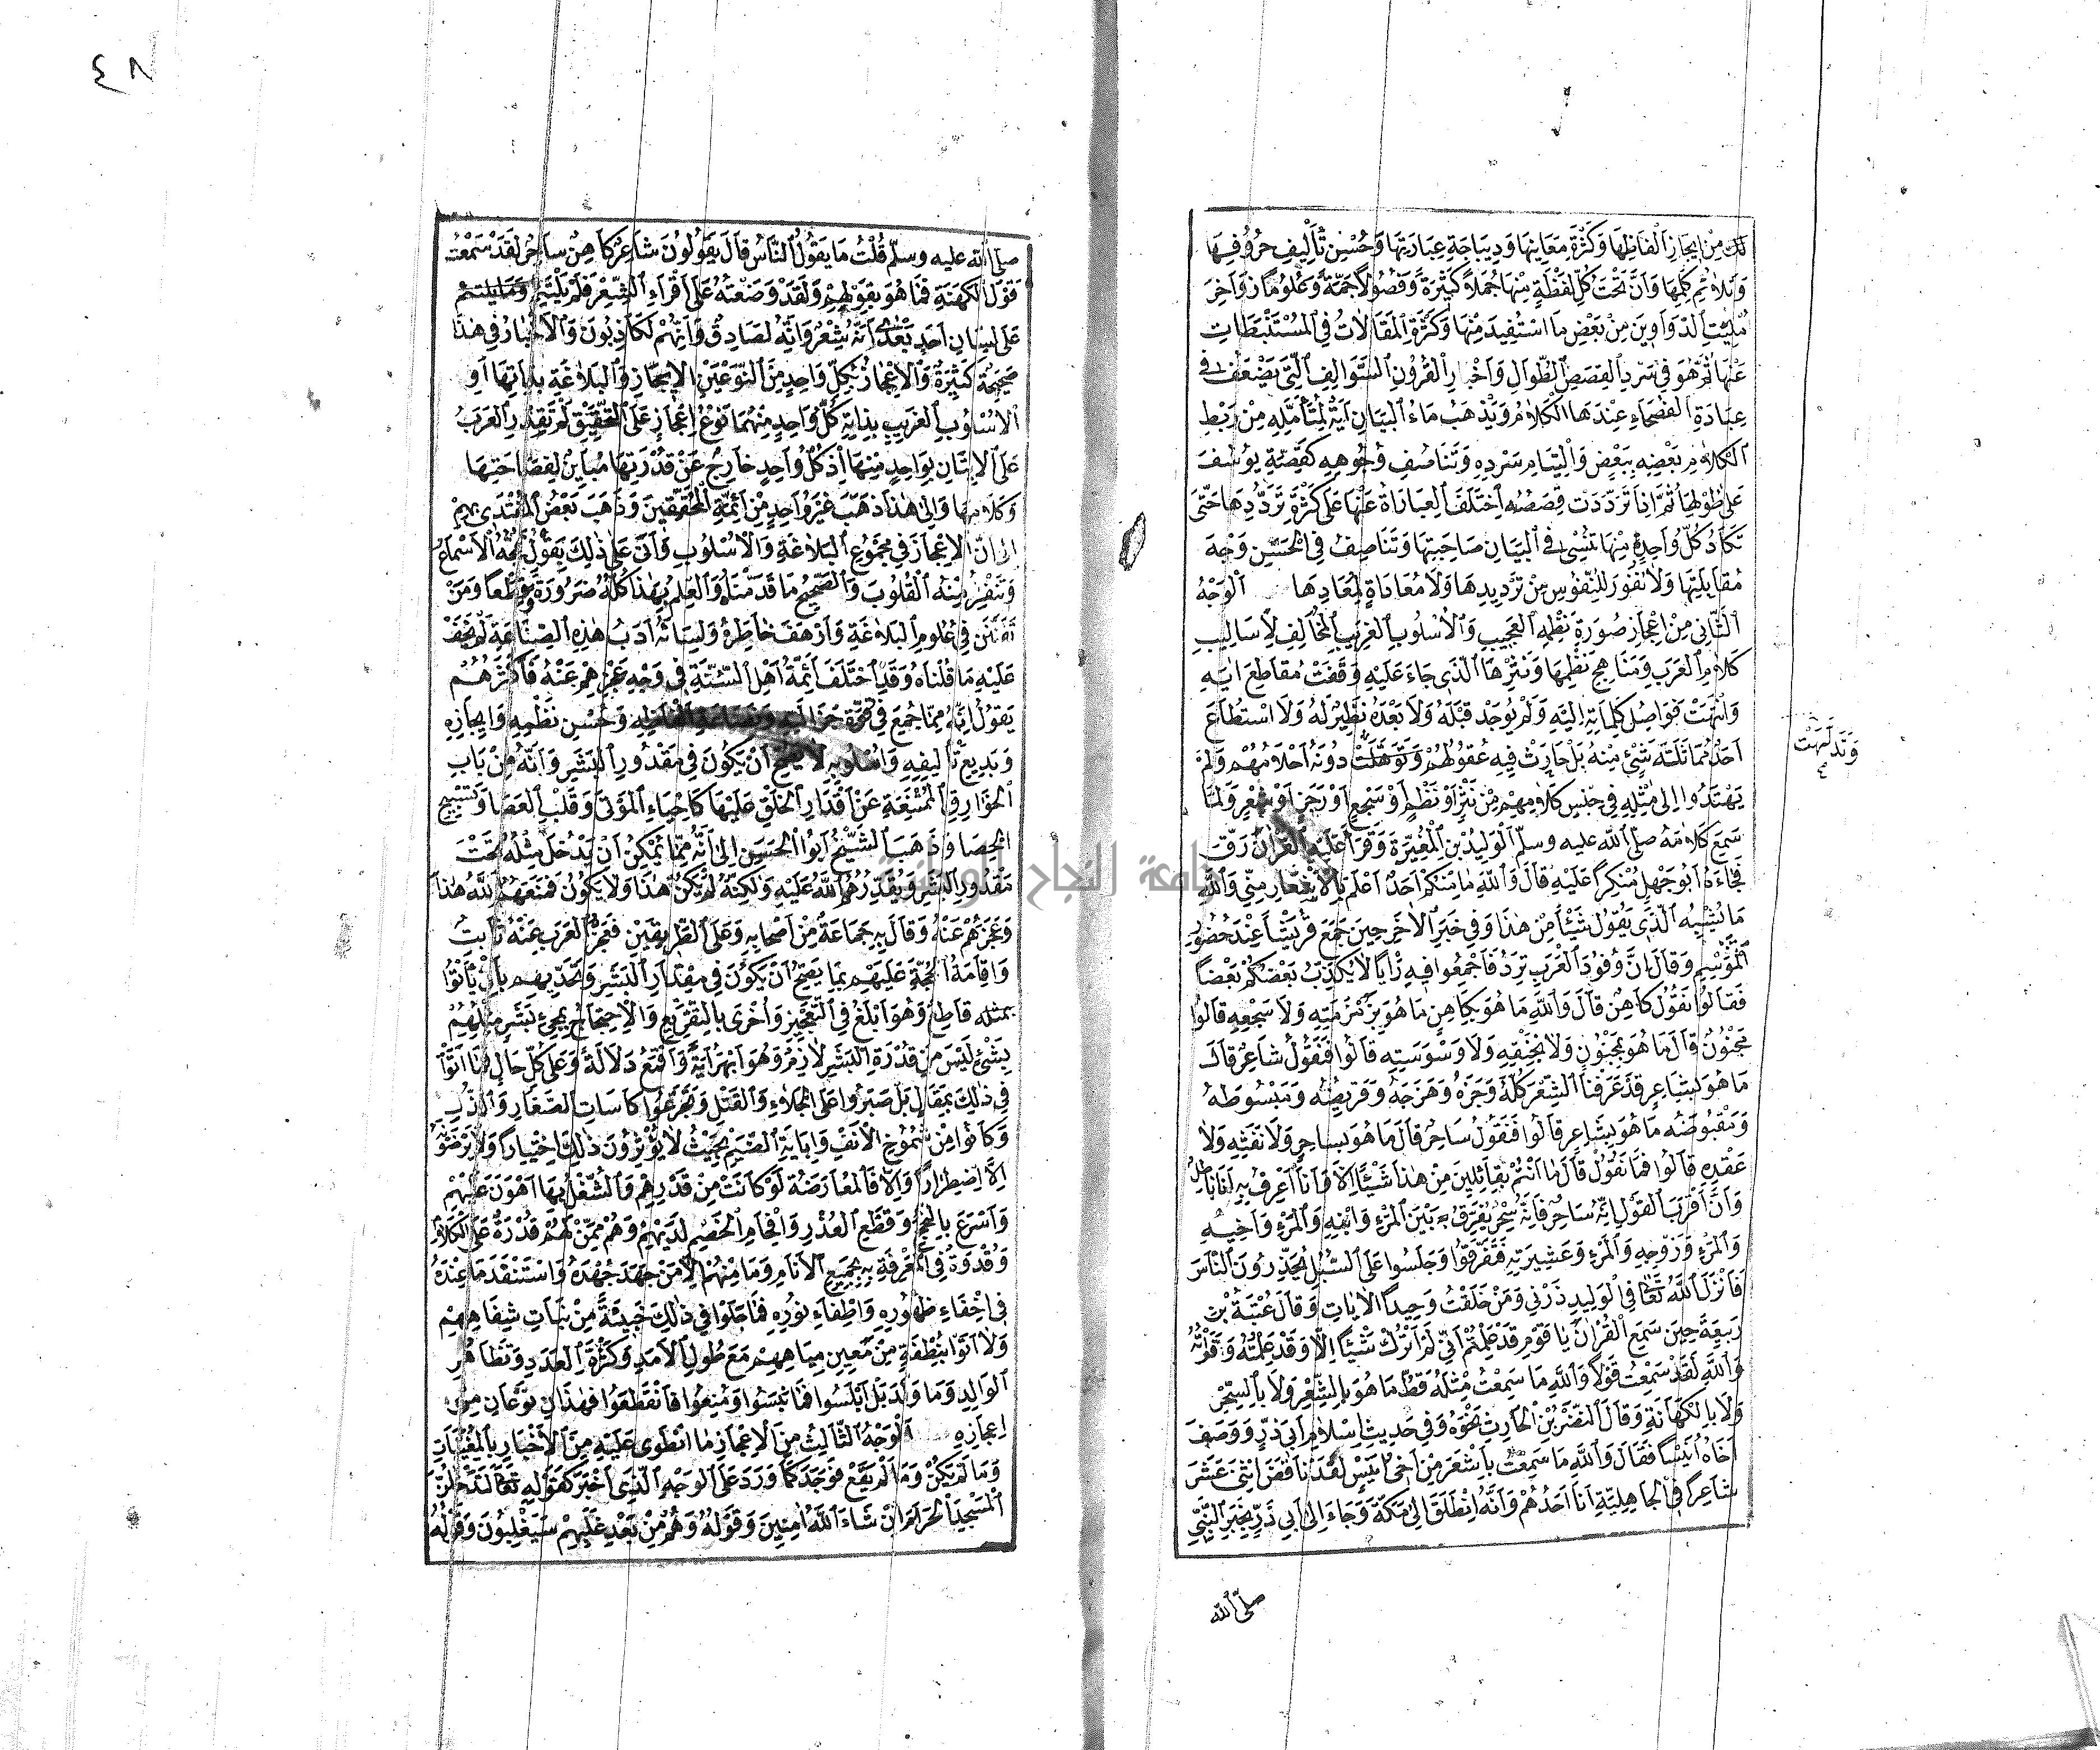 لك من ايجاز الفاظها وكثرة معانيها وديباجة عبارتها وحسن تأليف حروفها
وتلاؤم كلمها وان تحت كل لفظة منها جملا كثيرة وفصولا جمة وعلوما زواخر
مليت الدواوين من بعض ما استفيد منها وكثرة المقالات في المستنبطات
عنها ثم هو في سرد القصص الطوال واخبار القرون السوالف التي يضعف في
عبادة الفصحاء عندها الكلام ويذهب ماء البيان اية لمتأمله من ربط
الكلام بعضه ببعض والتيام سرده وتناصف وجوهه كقصة يوسف
على طولها ثم اذا ترددت قصصه اختلفت العبارات عنها على كثرة ترددها حتى
تكاد كل واحدة منها تنسى في البيان صاحبتها وتناصف في الحسن وجه
مقابلتها ولا نفور للنفوس من ترديدها ولا معاداة لمعادها الوجه
الثاني من اعجازه صورة نظمه العجيب والاسلوب الغريب المخالف لاساليب
كلام العرب ومناهج نظمها ونثرها الذي جاء عليه ووقفت مقاطع ايه
وانتهت فواصل كلماته اليه ولم يوجد قبله ولا بعده نظير له ولا استطاع
احد مماثلة شيء منه بل حارت فيه عقولهم وتولهت دونه احلامهم ولم
وتدلهت
يهتدوا الى مثله في جنس كلامهم من نثر او نظم او سجع او رجز او شعر ولما
سمع كلامه صلى الله عليه وسلم الوليد بن المغيرة وقرأ عليه القرآن رق
فجاءه ابو جهل منكرا عليه قال والله ما منكم احد اعلم بالاشعار مني والله
ما يشبه الذي يقول شيئا من هذا وفي خبره الاخر حين جمع قريشا عند حضور
الموسم وقال ان وفود العرب ترد فاجمعوا فيه رأيا لا يكذب بعضكم بعضا
فقالوا نقول كاهن قال والله ما هو بكاهن ما هو بزمزمته ولا سجعه قالوا
مجنون قال ما هو بمجنون ولا بخنقه ولا وسوسته قالوا فنقول شاعر قال
ما هو بشاعر قد عرفنا الشعر كله وجزه وهزجه وقريضه ومبسوطه
ومقبوضه ما هو بشاعر قالوا فنقول ساحر قال ما هو بساحر ولا نفثه ولا
عقده قالوا فما نقول قال ما انتم بقائلين من هذا شيئا الا وانا اعرف به انه باطل
وان اقرب القول انه ساحر فانه سحر يفرق به بين المرء وابنه والمرء واخيه
والمرء وزوجه والمرء وعشيرته فتفرقوا وجلسوا على السبل يحذرون الناس
فانزل الله تعالى في الوليد ذرني ومن خلقت وحيدا الآيات وقال عتبة بن
ربيعة حين سمع القرآن يا قوم قد علمتم اني لم اترك شيئا الا وقد علمته وقرأته
والله لقد سمعت قولا والله ما سمعت مثله قط ما هو بالشعر ولا بالسحر
ولا بالكهانة وقال النضر بن الحارث نحوه وفي حديث اسلام ابي ذر ووصف
اخاه انيسا فقال والله ما سمعت باشعر من اخي انيس لقد ناقض اثنى عشر
شاعرا في الجاهلية انا احدهم وانه انطلق الى مكة وجاء الى ابي ذر بخبر النبي
صلى الله
٤٨
صلى الله عليه وسلم قلت ما يقول الناس قال يقولون شاعر كاهن ساحر لقد سمعت
قول الكهنة فما هو بقولهم ولقد وضعته على اقراء الشعر فلم يلتئم وما يلتئم
على لسان احد بعدي انه شعر وانه لصادق وانهم لكاذبون والاخبار في هذا
صحيحة كثيرة والاعجاز بكل واحد من النوعين الايجاز والبلاغة بذاتها او
الاسلوب الغريب بذاته كل واحد منهما نوع اعجاز على التحقيق لم تقدر العرب
على الاتيان بواحد منها اذ كل واحد خارج عن قدرتها مباين لفصاحتها
وكلامها والى هذا ذهب غير واحد من ائمة المحققين وذهب بعض المقتدى بهم
الى ان الاعجاز في مجموع البلاغة والاسلوب واتى على ذلك بقول تمجه الاسماع
وتنفر منه القلوب والصحيح ما قدمناه والعلم بهذا كله ضرورة وقطعا ومن
تفنن في علوم البلاغة وارهف خاطره ولسانه ادب هذه الصناعة لم يخف
عليه ما قلناه وقد اختلف ائمة اهل السنة في وجه عجزهم عنه فاكثرهم
يقول انه مما جمع في قوة جزالته ونصاعة الفاظه وحسن نظمه وايجازه
وبديع تأليفه واسلوبه لا يصح ان يكون في مقدور البشر وانه من باب
الخوارق الممتنعة عن اقدار الخلق عليها كاحياء الموتى وقلب العصا وتسبيح
الحصا وذهب الشيخ ابو الحسن الى انه مما يمكن ان يدخل مثله تحت
مقدور البشر ويقدرهم الله عليه ولكنه لم يكن هذا ولا يكون فمنعهم الله هذا
وعجزهم عنه وقال به جماعة من اصحابه وعلى الطريقين فعجز العرب عنه ثابت
واقامة الحجة عليهم بما يصح ان يكون في مقدار البشر وتحديهم بان يأتوا
بمثله قاطع وهو ابلغ في التعجيز واحرى بالتقريع والاحتجاج بمجيء بشر مثلهم
بشيء ليس من قدرة البشر لازم وهو ابهر آية واقمع دلالة وعلى كل حال فما اتوا
في ذلك بمقال بل صبروا على الجلاء والقتل وتجرعوا كاسات الصغار والذل
وكانوا من شموخ الانف واباية الضيم بحيث لا يؤثرون ذلك اختيارا ولا يرضونه
الا اضطرارا والا فالمعارضة لو كانت من قدرهم والشغل بها اهون عليهم
واسرع بالنجح وقطع العذر وافحام الخصم لديهم وهم ممن لهم قدرة على الكلام
وقدوة في المعرفة به لجميع الانام وما منهم الا من جهد جهده واستنفد ما عنده
في اخفاء ظهوره واطفاء نوره فما جلوا في ذلك خبيئة من بنات شفاههم
ولا اتوا بنطفة من معين مياههم مع طول الامد وكثرة العدد وتظاهر
الوالد وما ولد بل ابلسوا فما نبسوا ومنعوا فانقطعوا فهذان نوعان من
اعجازه الوجه الثالث من الاعجاز ما انطوى عليه من الاخبار بالمغيبات
وما لم يكن وما لم يقع فوجد كما ورد على الوجه الذي اخبر كقوله تعالى لتدخلن
المسجد الحرام ان شاء الله امنين وقوله وهم من بعد غلبهم سيغلبون وقوله
جامعة النجاح الوطنية